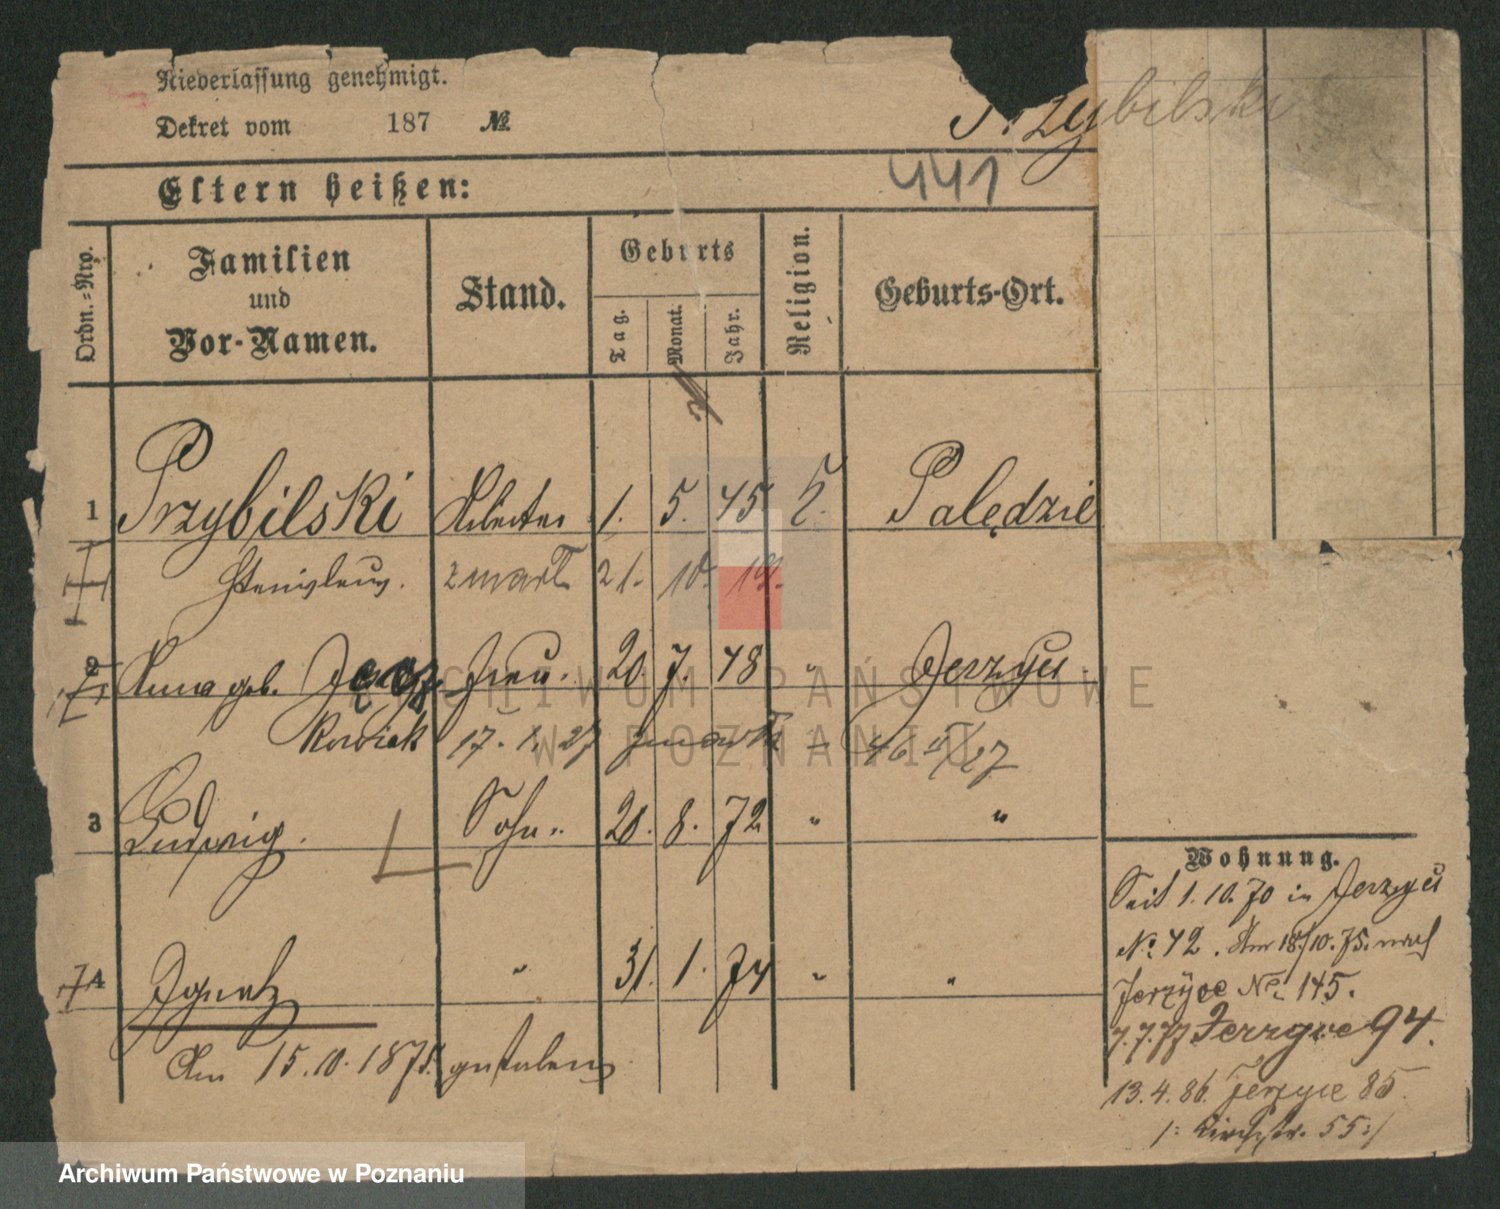 Niederlassung genehmigt.
Dekret vom 187 №
Przybilski
441
Eltern heißen:
Ordn.-Nro.
Familien und Vor-Namen.
Stand.
Geburts
Tag. Monat. Jahr.
Religion.
Geburts-Ort.
1 Przybilski Arbeiter 1. 5. 45 k. Palędzie
Stanislaus. zmarł 21. 10. 19.
2 Anna geb. Frau. 20 7. 48 " Jerzyce
kowiak 17. 1. 27 zmarła
3 Ludwig. Sohn. 20. 8. 72 " "
4 Ignatz " 31. 1. 74 " "
Am 15.10.1875. gestorben
Wohnung.
Seit 1. 10. 70 in Jerzyce
No. 42. Am 18/10. 75. nach
Jerzyce No. 145.
7.7.77 Jerzyce 94.
13.4.86. Jerzyce 85.
/: Kirchstr. 55 :/
ARCHIWUM PAŃSTWOWE
W POZNANIU
Archiwum Państwowe w Poznaniu